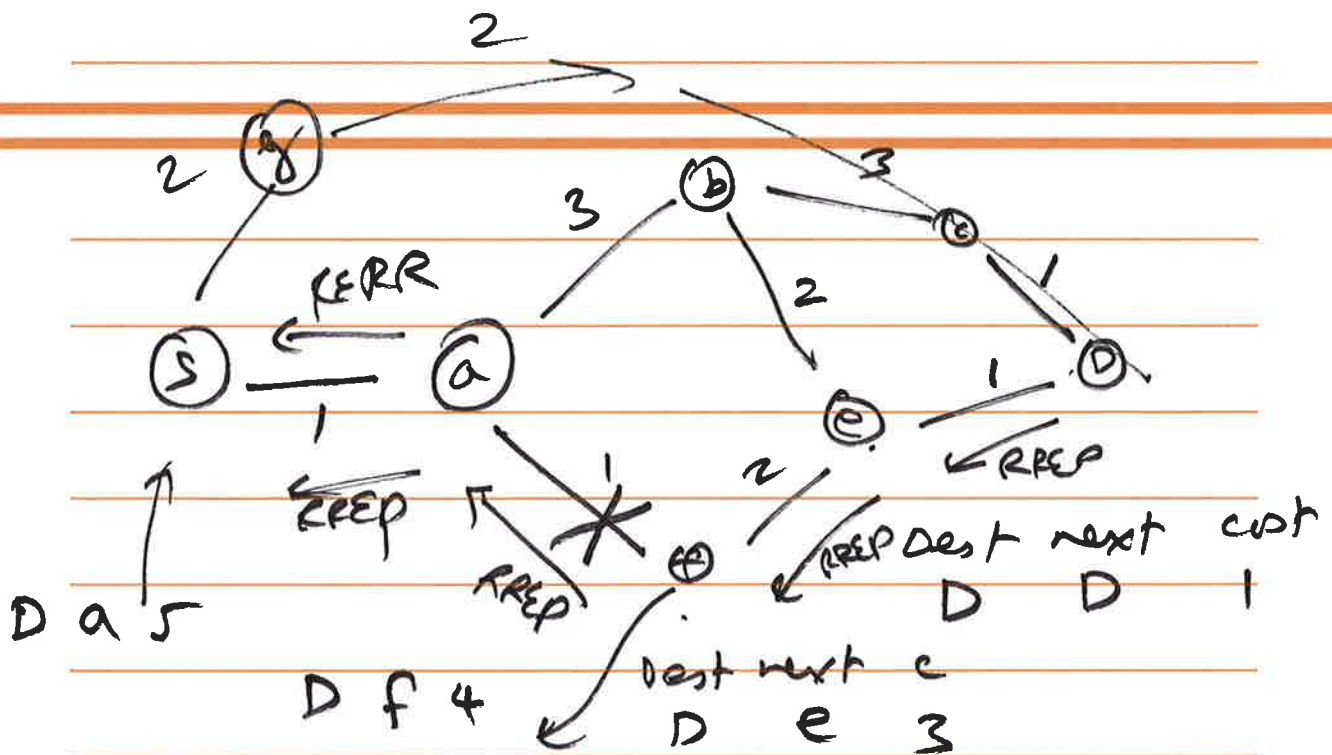 2
g
2
b
3
3
c
RERR
2
1
S
a
D
1
1
e
RREP
1
2
RREP
RREP
RREP
Dest next cost
D D 1
D a 5
f
Dest next c
D f 4
D e 3